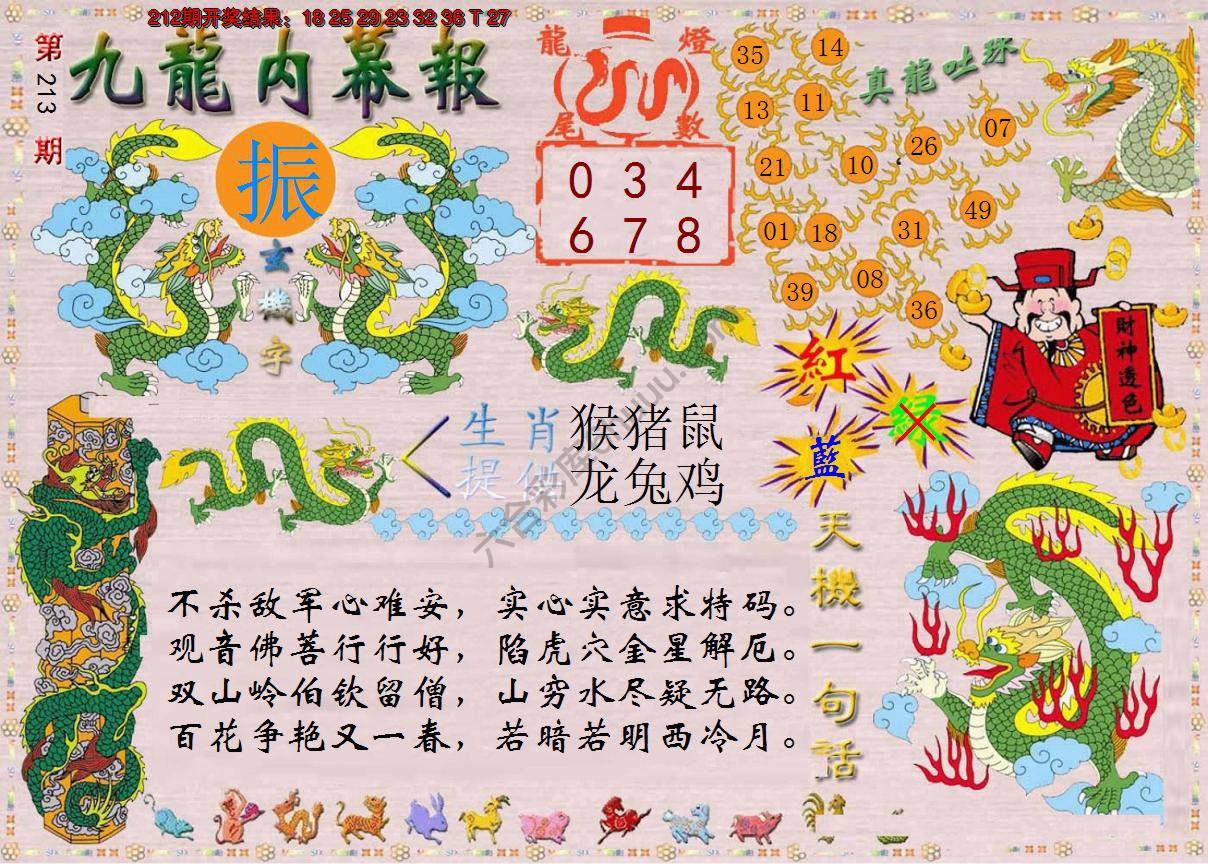 212期开奖结果：18 25 29 23 32 36 T 27
第213期
九龍内幕報
振
玄機字
龍燈
尾數
0 3 4
6 7 8
真龍吐珠
35
14
13
11
07
26
21
10
49
01
18
31
39
08
36
財神透色
紅
绿
藍
生肖
提供
猴猪鼠
龙兔鸡
六合彩库
天機一句話
不杀敌军心难安，实心实意求特码。
观音佛菩行行好，陷虎穴金星解厄。
双山岭伯钦留僧，山穷水尽疑无路。
百花争艳又一春，若暗若明西冷月。